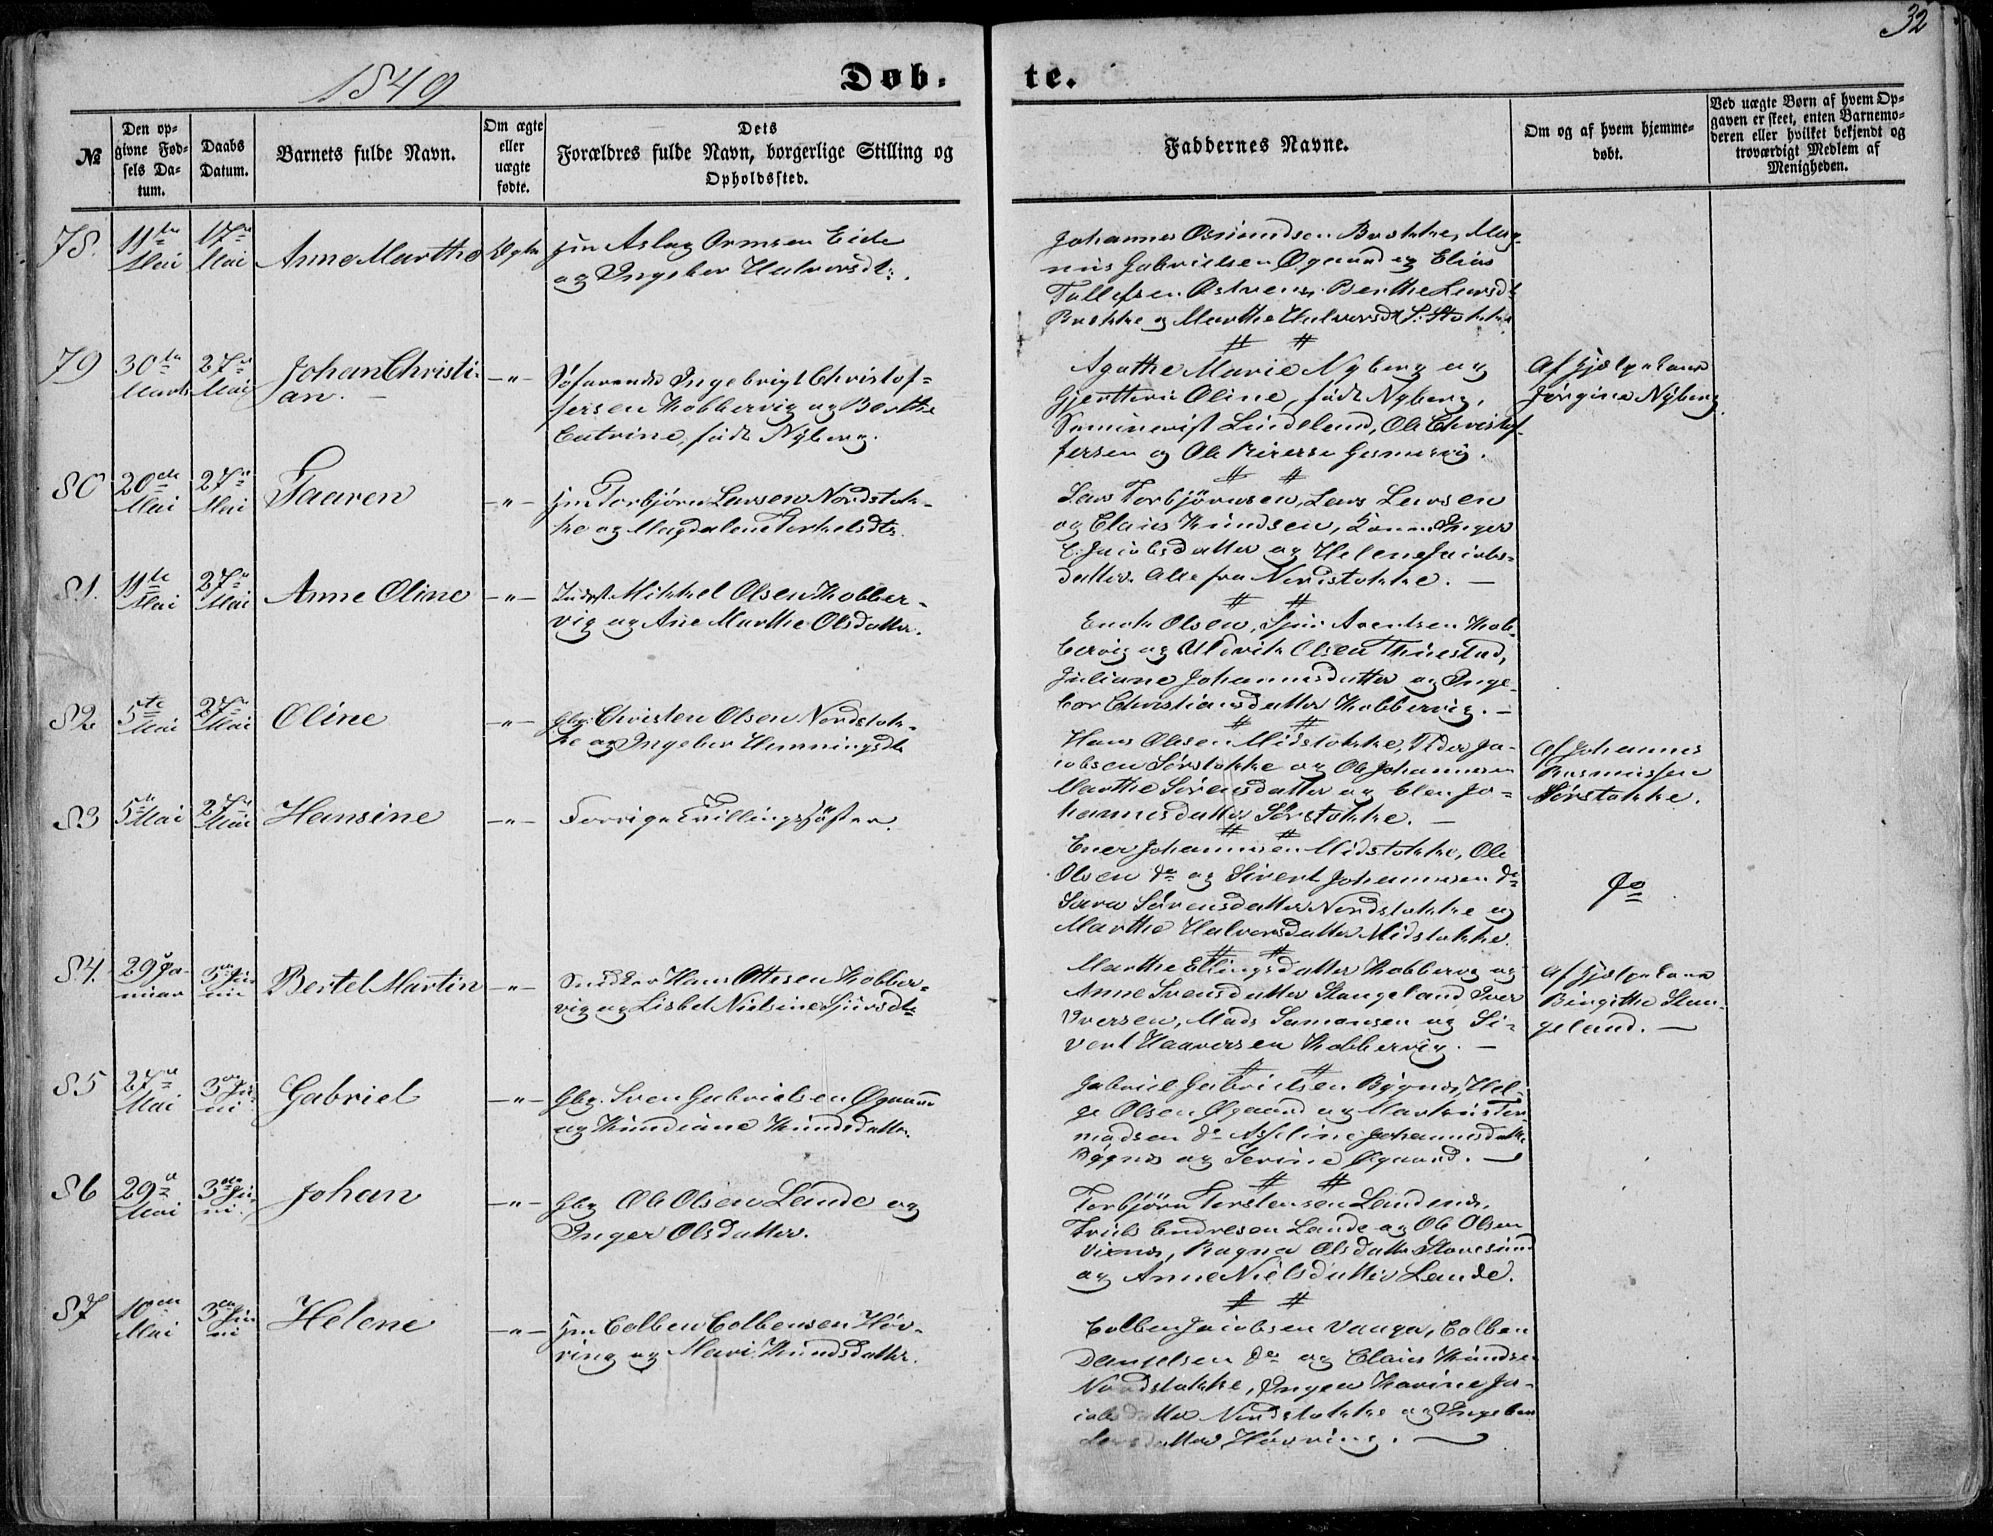 32
1849
Døb-
te.
№
Den op-
givne Fød-
sels Da-
tum.
Daabs
Datum.
Barnets fulde Navn.
Om ægte
eller
uægte
fødte.
Dets
Forældres fulde Navn, borgerlige Stilling og
Opholdssted.
Faddernes Navne.
Om og af hvem hjemme-
døbt.
Ved uægte Børn af hvem Op-
gaven er skeet, enten Barnemo-
deren eller hvilket bekjendt og
troværdigt Medlem af
Menigheden.
78.
11te
Mai
17de
Mai
Anne Marthe
Ægte
Hm Aslag Ormsen Eide
og Ingebor Halvorsdt.
Johannes Osmundsen Brekke, Mag-
nus Gabrielsen Øgaard og Elias
Tollefsen Berthe Larsdt
og Marthe Halvorsdt S. Stokke
79
30te
Marts
27de
Mai
Johan Christi-
an.
—"—
Søfarende Ingebrigt Christof-
fersen Kobbervig og Berthe
Catrine, født Nyberg.
Agathe Marie Nyberg og
Oline, født Nyberg,
Seminarist Lindeland, Ole Christof-
fersen og Ole
Af Hjælpekone
Jørgine Nyberg
80
20de
Mai
27de
Mai
Taaren
—"—
Hm Torbjørn Larsen Nordstok-
ke og Magdalene Torkelsdtr.
Lars Torbjørnsen, Lars Larsen
og Claus Knudsen, Kone Inger
C. Jacobsdatter og Helene Jacobs-
datter. Alle fra Nordstokke. —
81.
11te
Mai
27de
Mai
Anne Oline
—"—
Inds. Mikkel Olsen Kobber-
vig og Ane Marthe Olsdatter.
Enok Olsen, Arentsen Kob-
bervig og Uldrik Olsen Thuestad,
Juliane Johannesdatter og Inge-
bor Christiansdatter Kobbervig. —
82
5te
Mai
27de
Mai
Oline
—"—
Gbr. Christen Olsen Nordstok-
ke og Ingebor Henningsdt
Hans Olsen Midstokke, Peder Ja-
cobsen Sørstokke og Ole Johannessen
Marthe Sørensdatter og Elen Jo-
hannesdatter Sørstokke. —
Af Johannes
Rasmussen
Sørstokke.
83
5te
Mai
27de
Mai
Hansine
—"—
Forriges Tvillingsøster.
Ener Johannessen Midstokke, Ole
Olsen do og Sivert Johannessen do
Sara Sørensdatter Nordstokke og
Marthe Halvorsdatter Midstokke.
do
84.
29 Ja-
nuar
3de Ju-
nii
Bertel Martin
—"—
Snedker Hans Ottesen Kobber-
vig og Lisbet Nielsine Sjursdtr
Marthe Ellingsdatter Kobbervig og
Anne Svensdatter Stangeland Iver
Iversen, Mads Samonsen og Si-
vert Haaversen Kobbervig. —
Af Hjælpekone
Birgithe Stan-
geland. —
85
27de
Mai
3die Ju-
ni
Gabriel
—"—
Gbr. Sven Gabrielsen Øgaard
og Knudiane Knudsdatter.
Gabriel Gabrielsen Bygnes, Hel-
ge Olsen Øgaard og Markus Tor-
madsen do Asseline Johannesdatter
Bygnes og Serine Øgaard. —
86
29de
Mai
3die Ju-
ni.
Johan
—"—
Gbr Ole Olsen Lande og
Inger Olsdatter.
Torbjørn Torstensen Landenes,
Endresen Lande og Ole Olsen
Vixnes, Ragna Olsdatter Storesund
og Anne Nielsdatter Lande.
87
10de
Mai
3die Ju-
ni
Helene
—"—
Hm Colben Colbensen Høv-
ring og Mari Knudsdatter.
Colben Jacobsen Vaage, Colben
Danielsen do og Claus Knudsen
Nordstokke, Inger Karine Ja-
cobsdatter Nordstokke og Ingebor
datter Høvring. —